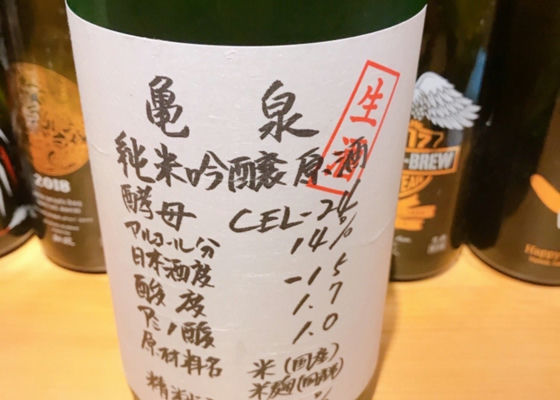 亀泉
生酒
純米吟醸原酒
酵母 CEL-24
アルコール分 14%
日本酒度 -15
酸度 1.7
アミノ酸 1.0
原材料名 米(国産)
米麹(国産米)
精米
2018
17
-BREW
Happy